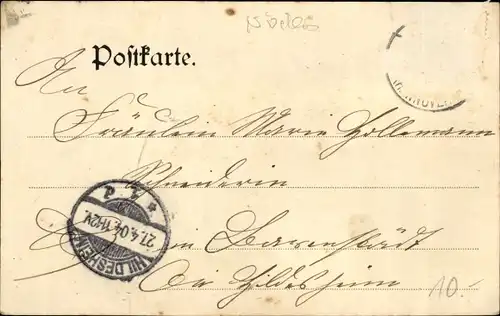 Postkarte.
An
Fräulein Marie Hollemann
Schneiderin
in Barenstädt
bei Hildesheim
HILDESHEIM
27.4.04. 11-12V.
10.-